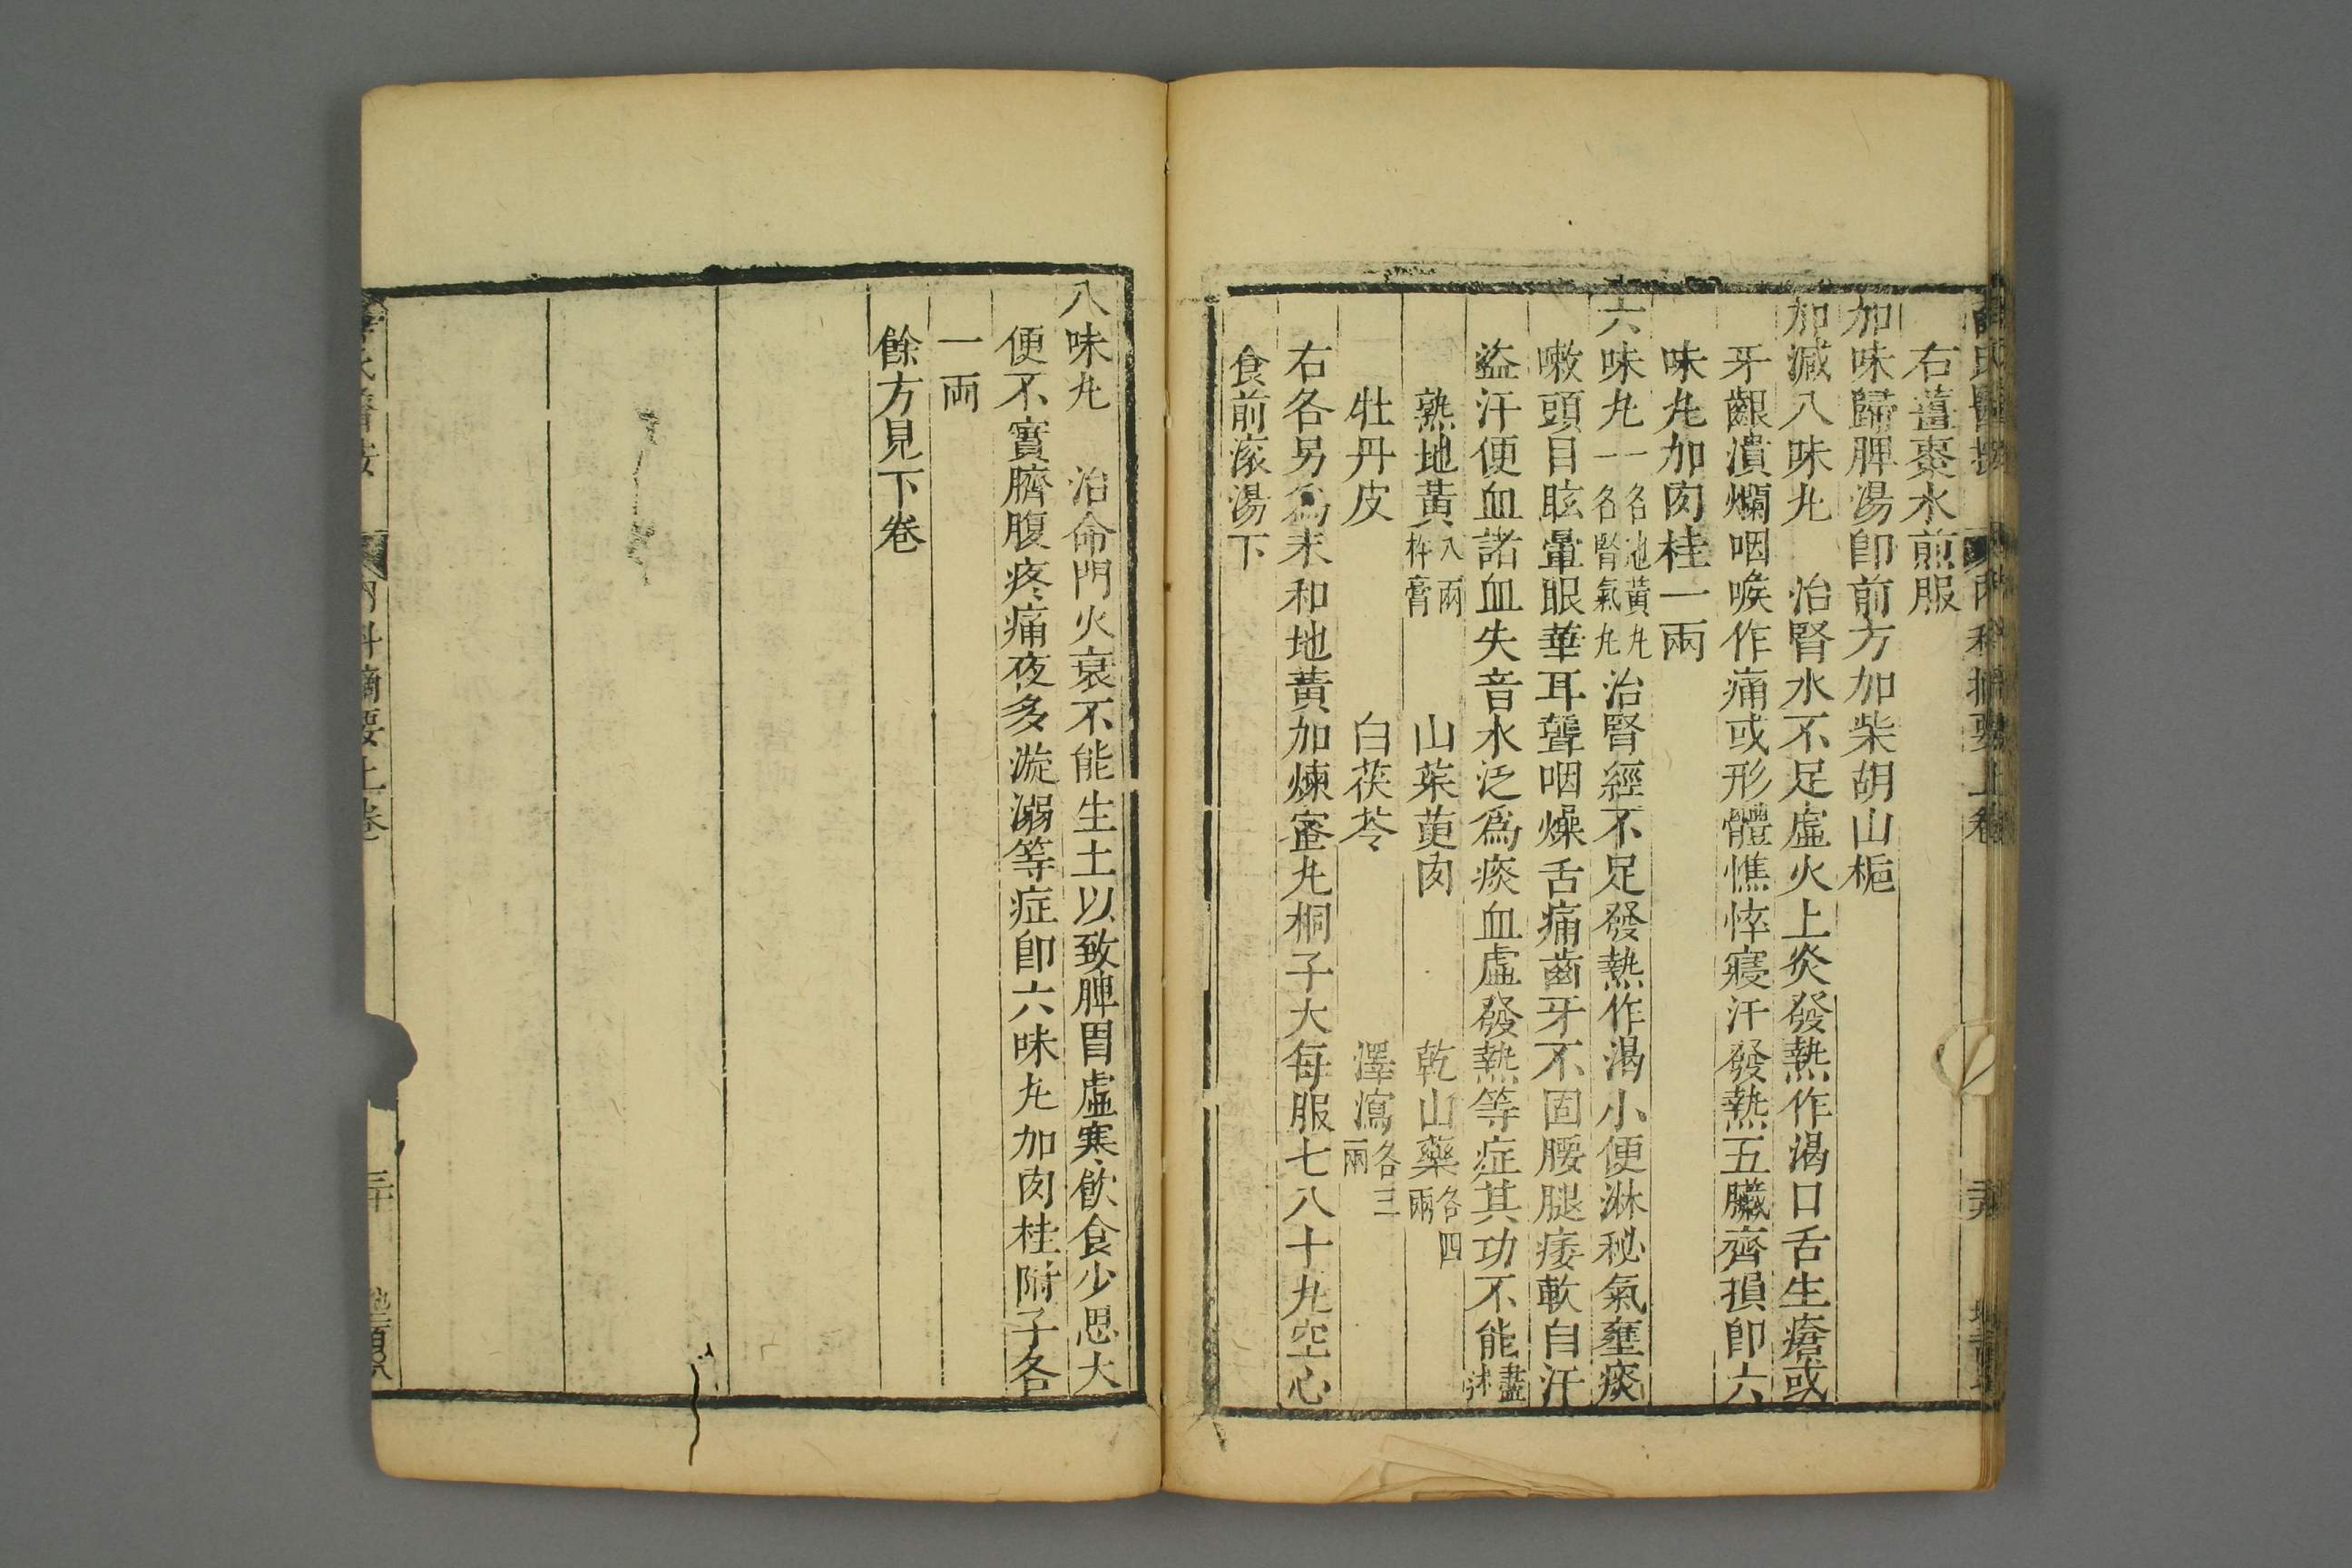 薛氏醫按 內科摘要上卷
右薑棗水煎服
加味歸脾湯卽前方加柴胡山梔
加減八味丸 治腎水不足虛火上炎發熱作渴口舌生瘡或
牙齦潰爛咽喉作痛或形體憔悴寢汗發熱五臟齊損卽六
味丸加肉桂一兩
六味丸一名地黃丸一名腎氣丸治腎經不足發熱作渴小便淋秘氣壅痰
嗽頭目眩暈眼華耳聾咽燥舌痛齒牙不固腰腿痿軟自汗
盜汗便血諸血失音水泛爲痰血虛發熱等症其功不能盡述
熟地黃八兩杵膏 山茱萸肉 乾山藥各四兩
牡丹皮 白茯苓 澤瀉各三兩
右各另爲末和地黃加煉蜜丸桐子大每服七八十丸空心
食前滾湯下
八味丸 治命門火衰不能生土以致脾胃虛寒飲食少思大
便不實臍腹疼痛夜多漩溺等症卽六味丸加肉桂附子各
一両
餘方見下卷
薛氏醫按 內科摘要上卷 三十